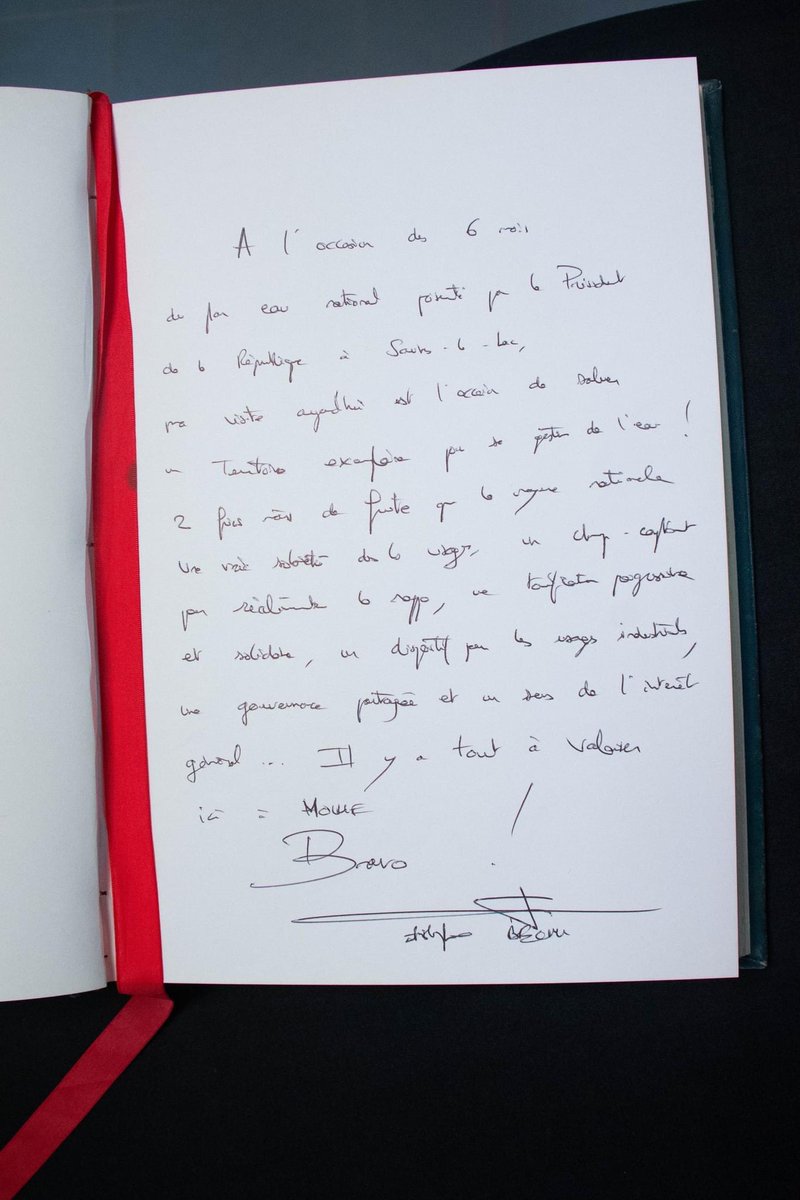 A l'occasion des 6 mois
du plan eau national présenté par le Président
de la République à Savines-le-Lac,
ma visite aujourd'hui est l'occasion de saluer
un Territoire exemplaire pour sa gestion de l'eau !
2 fois moins de fuite que la moyenne nationale
Une vraie solidarité dans les usages, un champ-captant
pour réalimenter la nappe, une tarification progressive
et solidaire, un dispositif pour les usages industriels,
une gouvernance partagée et un sens de l'intérêt
général ... Il y a tout à valoriser
ici à MOULLE !
Bravo
BÉCHU